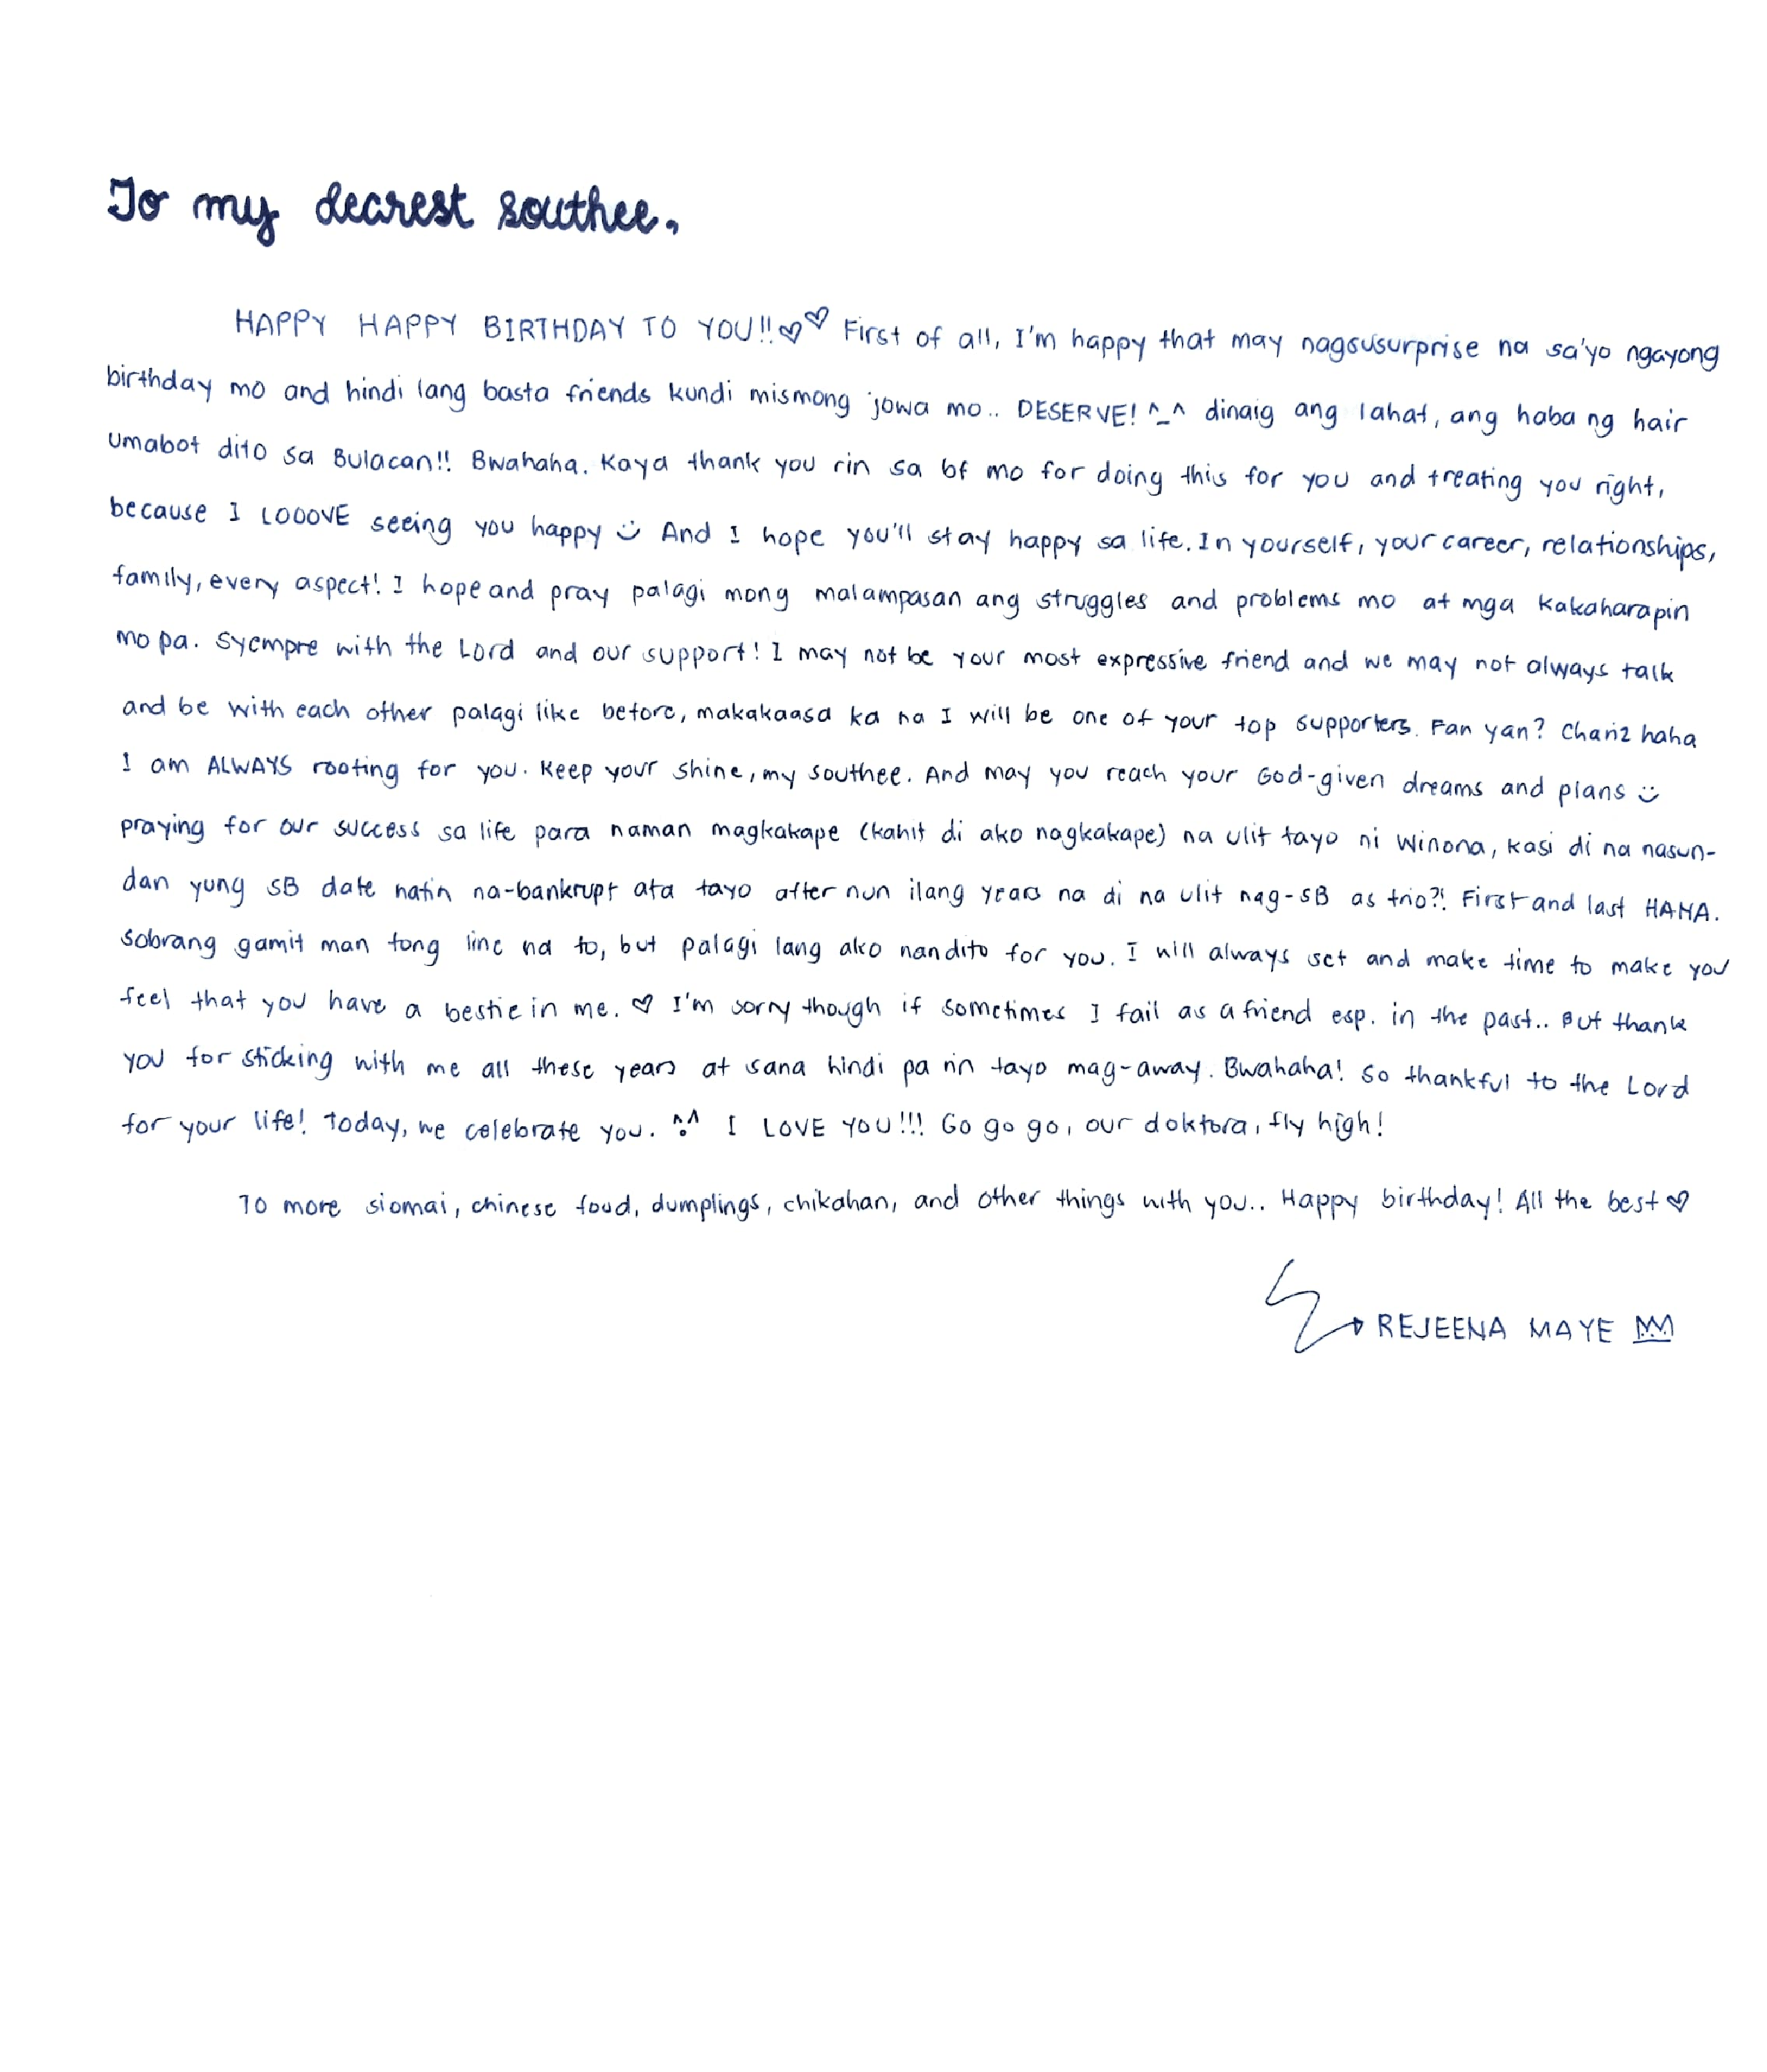 To my dearest southee,
HAPPY HAPPY BIRTHDAY TO YOU!!♡♡ First of all, I'm happy that may nagsusurprise na sa'yo ngayong
birthday mo and hindi lang basta friends kundi mismong jowa mo.. DESERVE! ^_^ dinaig ang lahat, ang haba ng hair
umabot dito sa Bulacan!! Bwahaha. Kaya thank you rin sa bf mo for doing this for you and treating you right,
because I LOOOVE seeing you happy :) And I hope you'll stay happy sa life. In yourself, your career, relationships,
family, every aspect! I hope and pray palagi mong malampasan ang struggles and problems mo at mga kakaharapin
mo pa. Syempre with the Lord and our support! I may not be your most expressive friend and we may not always talk
and be with each other palagi like before, makakaasa ka na I will be one of your top supporters. Fan yan? Chariz haha
I am ALWAYS rooting for you. Keep your shine, my southee. And may you reach your God-given dreams and plans :)
praying for our success sa life para naman magkakape (kahit di ako nagkakape) na ulit tayo ni Winona, kasi di na nasun-
dan yung SB date natin na-bankrupt ata tayo after nun ilang years na di na ulit nag-SB as trio?! First and last HAHA.
Sobrang gamit man tong line na to, but palagi lang ako nandito for you. I will always set and make time to make you
feel that you have a bestie in me. ♡ I'm sorry though if sometimes I fail as a friend esp. in the past.. But thank
you for sticking with me all these years at sana hindi pa rin tayo mag-away. Bwahaha! So thankful to the Lord
for your life! Today, we celebrate you. ^.^ I LOVE YOU!!! Go go go, our doktora, fly high!
To more siomai, chinese food, dumplings, chikahan, and other things with you.. Happy birthday! All the best ♡
REJEENA MAYE